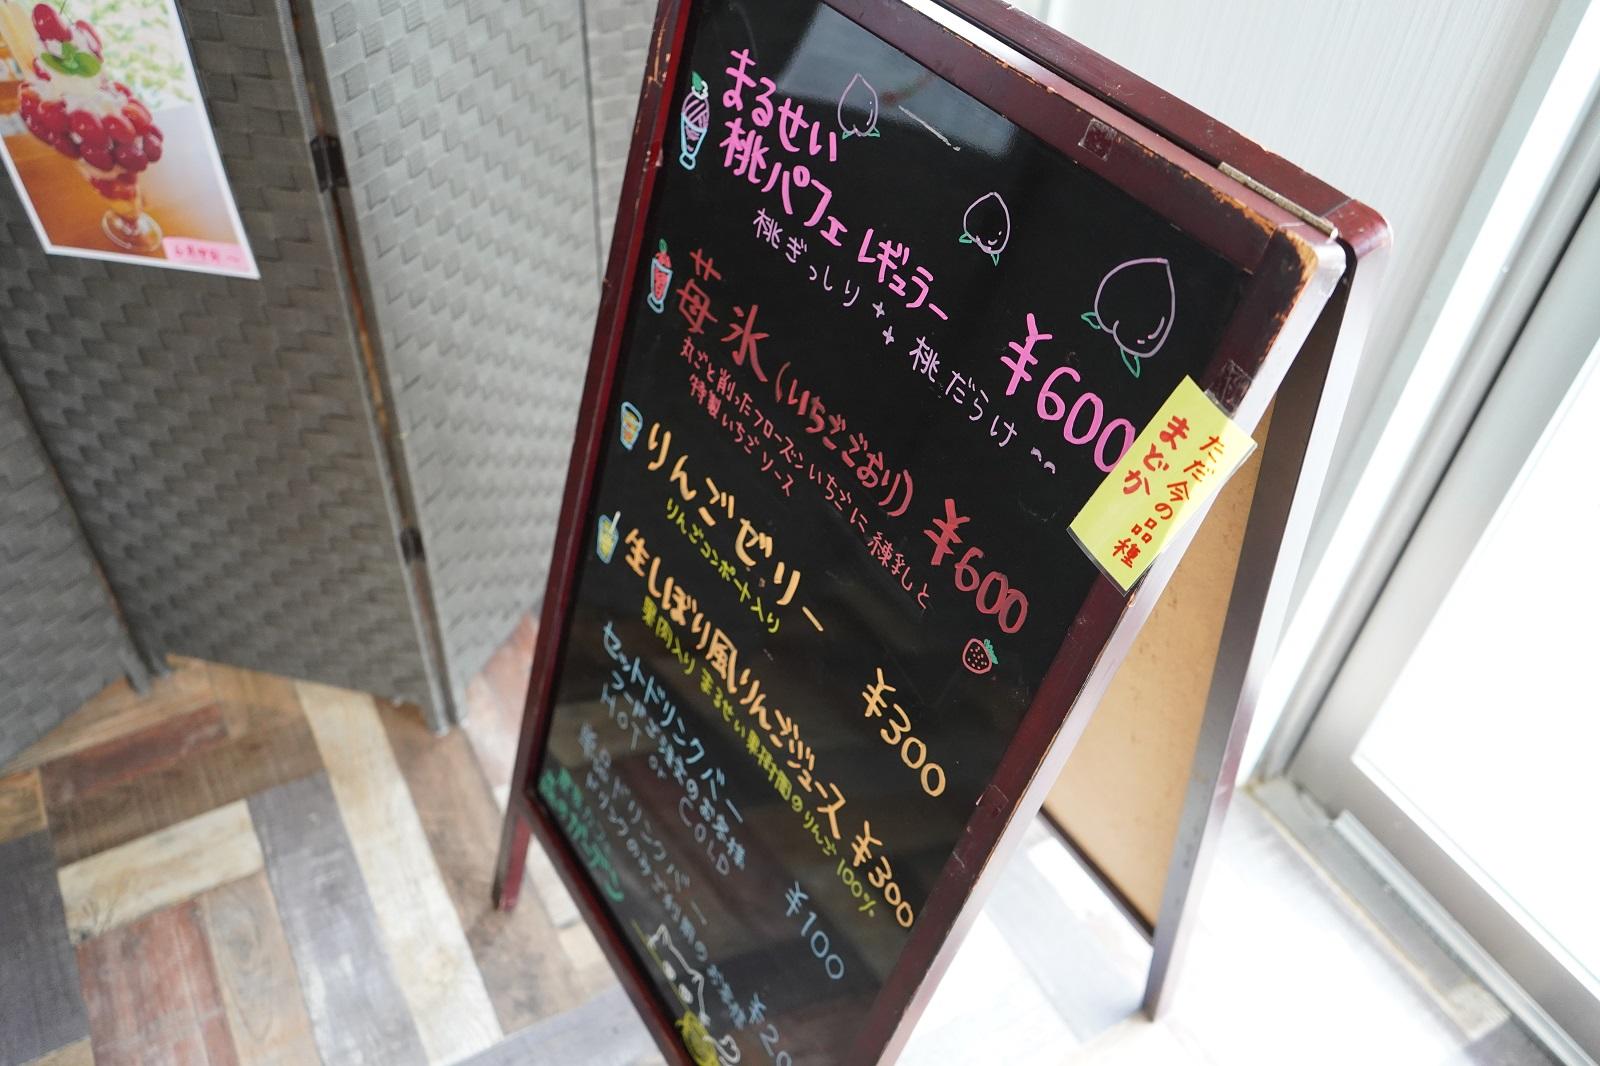 まるせい
桃パフェ レギュラー
¥600
桃ぎっしり 桃だらけ～
ただ今の品種
まどか
苺氷(いちごごおり) ¥600
丸ごと削ったフローズンいちごに練乳と
特製いちごソース
りんごゼリー ¥300
りんごコンポート入り
生しぼり風りんごジュース ¥300
果肉入り まるせい果樹園のりんご100%
セットドリンクバー ¥100
フードご注文のお客様
HOT or COLD
単品ドリンクバー ¥20
ドリンクのみご利用のお客様